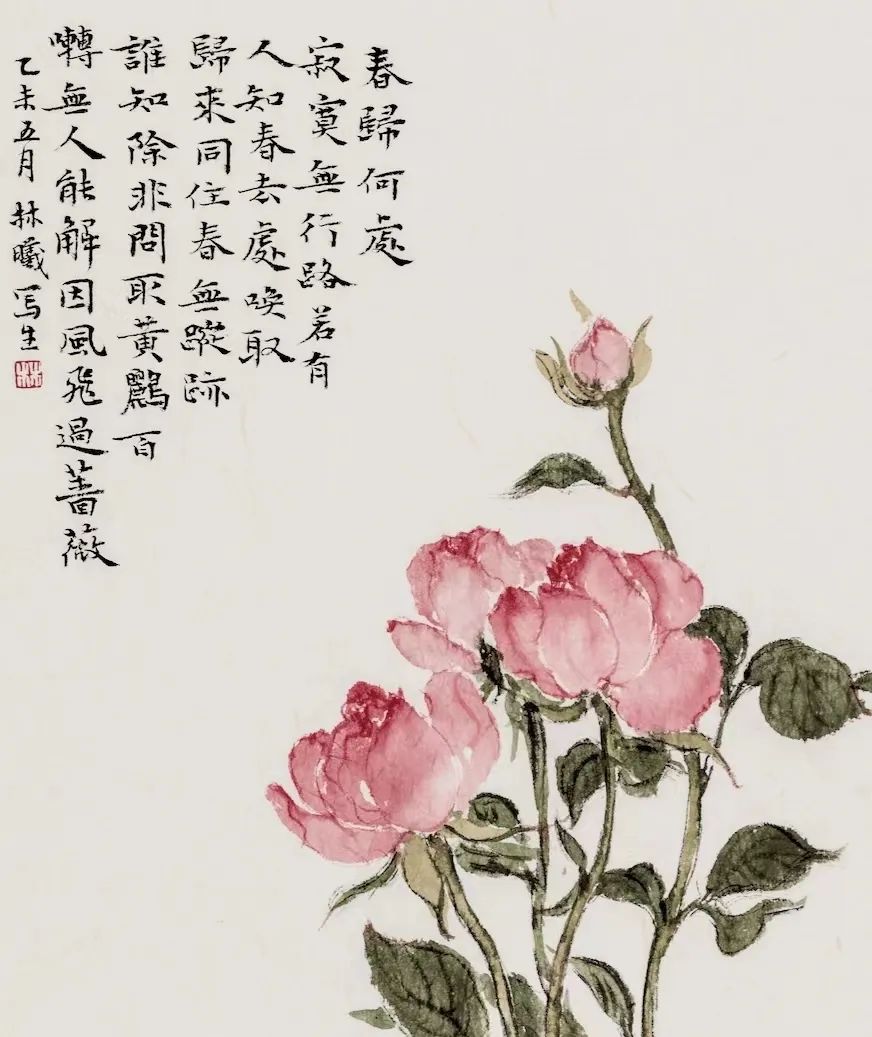 春歸何處
寂寞無行路若有
人知春去處喚取
歸來同住春無蹤跡
誰知除非問取黃鸝百
囀無人能解因風飛過薔薇
乙未五月 林曦写生
林